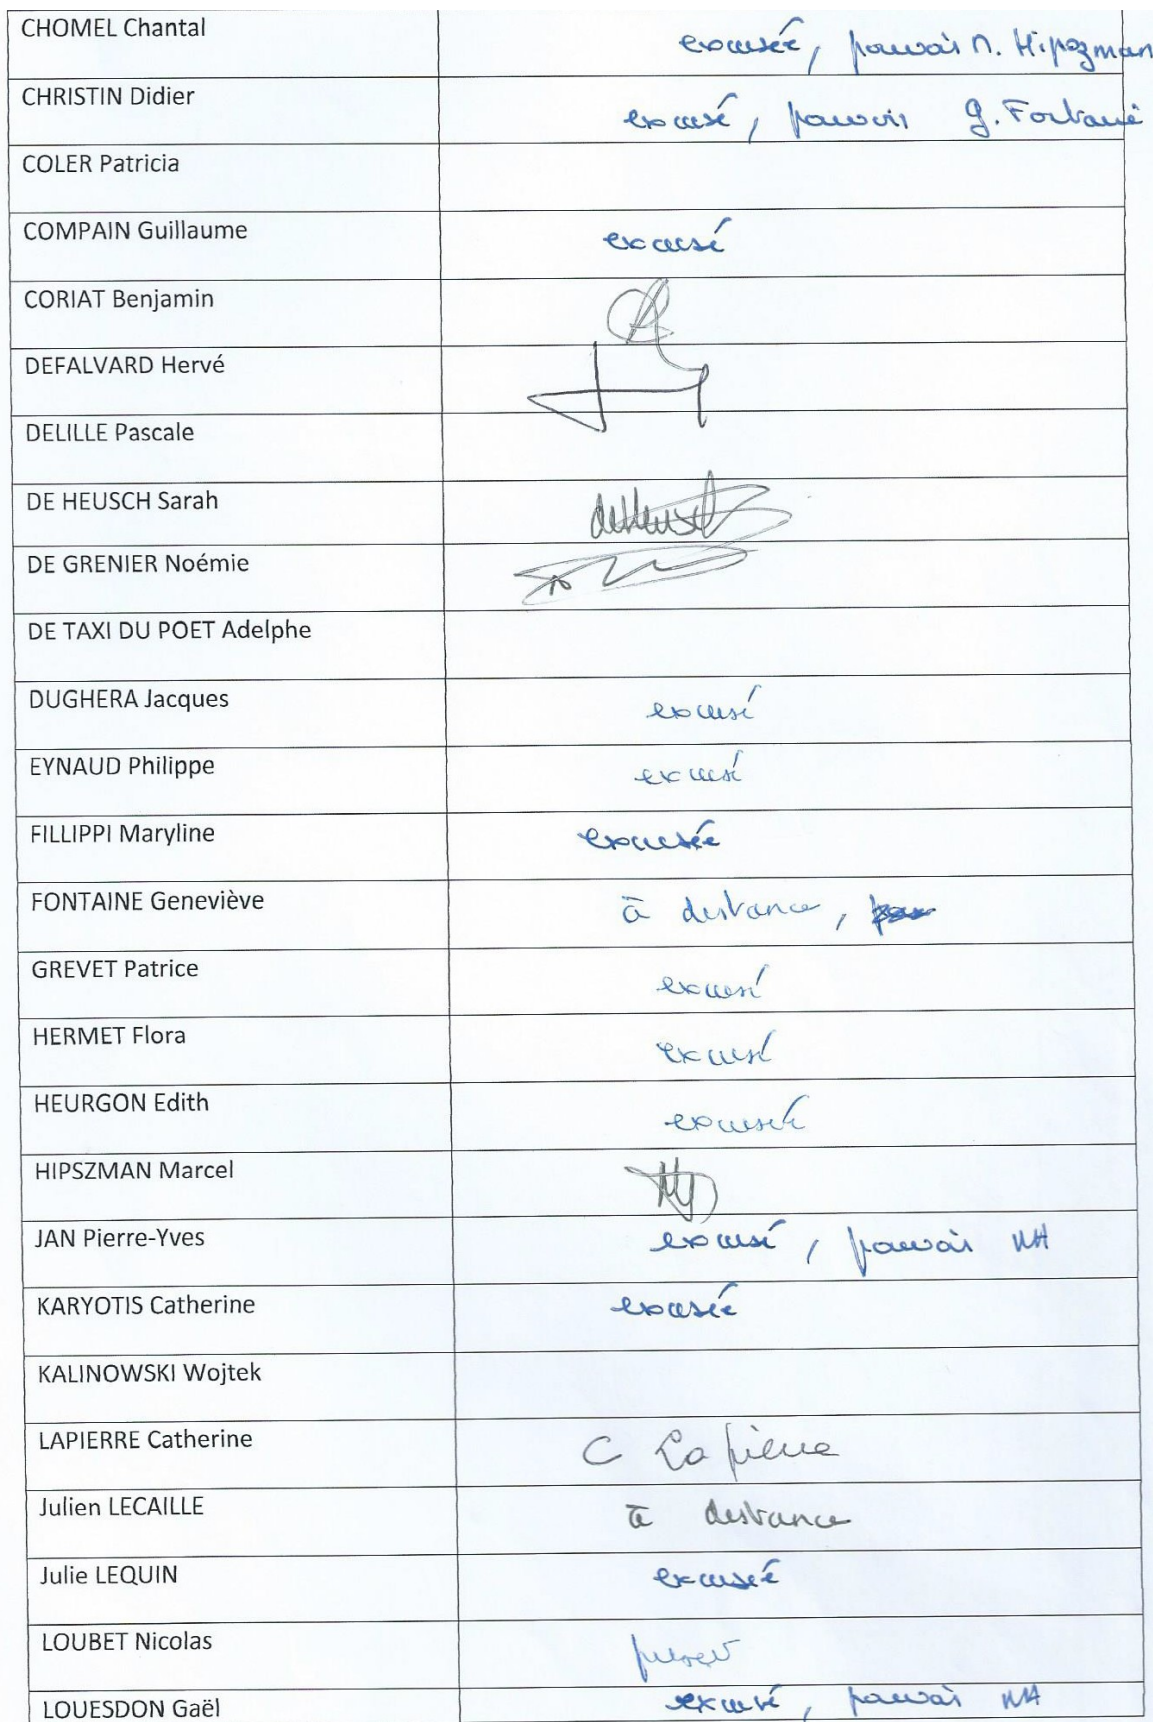 CHOMEL Chantal excusée, pouvoir M. Hipszman
CHRISTIN Didier excusé, pouvoir G. Fontaine
COLER Patricia
COMPAIN Guillaume excusé
CORIAT Benjamin
DEFALVARD Hervé
DELILLE Pascale
DE HEUSCH Sarah deHeusch
DE GRENIER Noémie
DE TAXI DU POET Adelphe
DUGHERA Jacques excusé
EYNAUD Philippe excusé
FILLIPPI Maryline excusée
FONTAINE Geneviève à distance,
GREVET Patrice excusé
HERMET Flora excusé
HEURGON Edith excusée
HIPSZMAN Marcel
JAN Pierre-Yves excusé, pouvoir MH
KARYOTIS Catherine excusée
KALINOWSKI Wojtek
LAPIERRE Catherine C Lapierre
Julien LECAILLE à distance
Julie LEQUIN excusée
LOUBET Nicolas présent
LOUESDON Gaël excusé, pouvoir MH